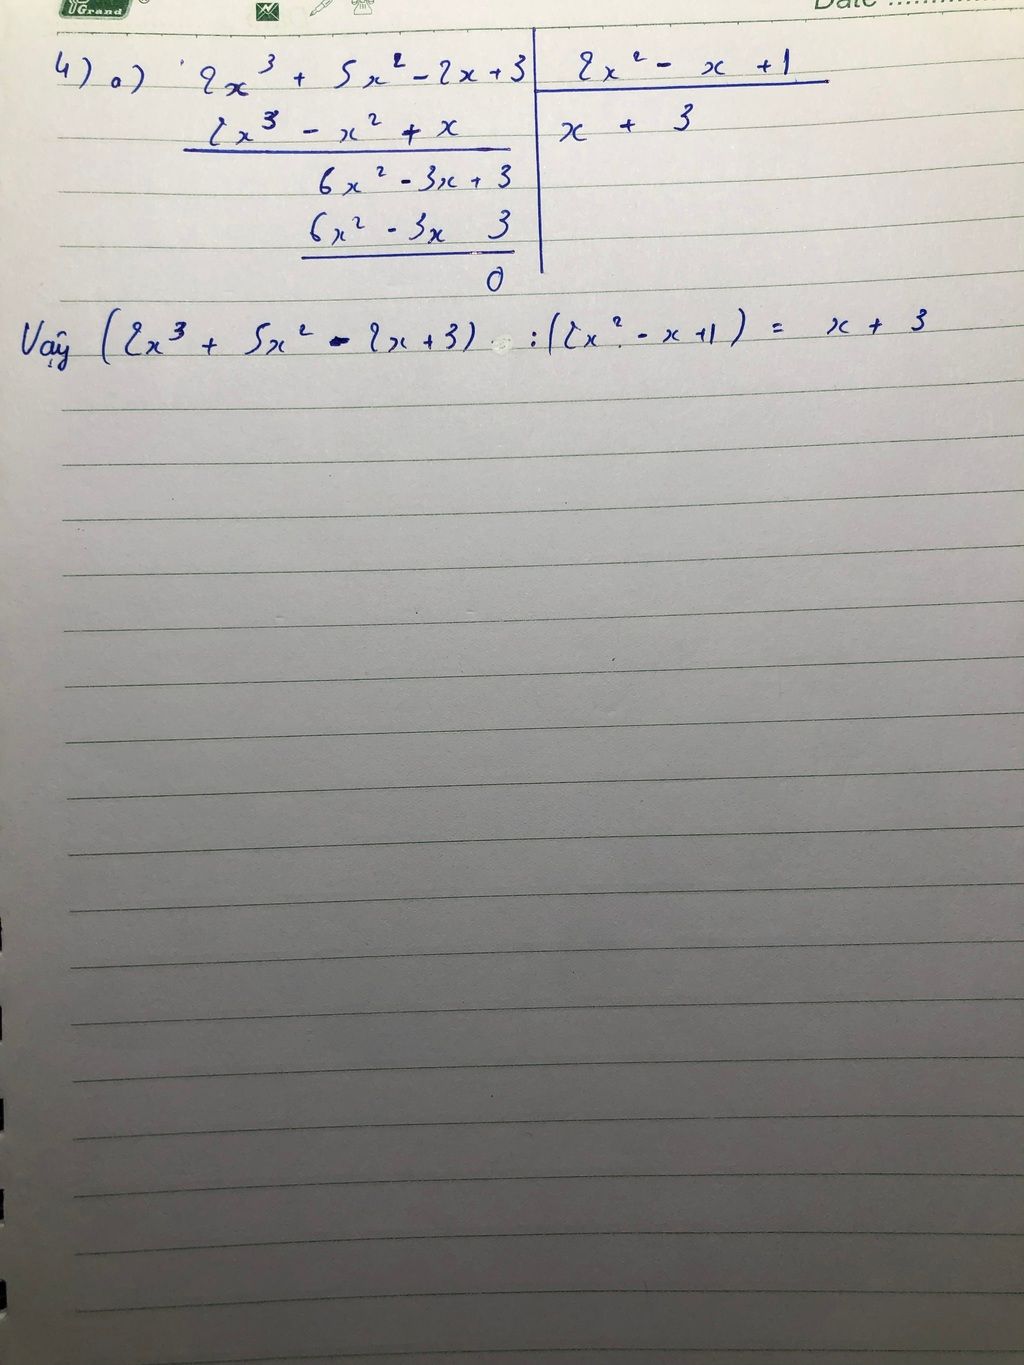 Grand
Date ............
4) a) 2x³ + 5x² - 2x + 3 | 2x² - x + 1
2x³ - x² + x | x + 3
6x² - 3x + 3
6x² - 3x 3
0
Vậy (2x³ + 5x² - 2x + 3) : (2x² - x + 1) = x + 3